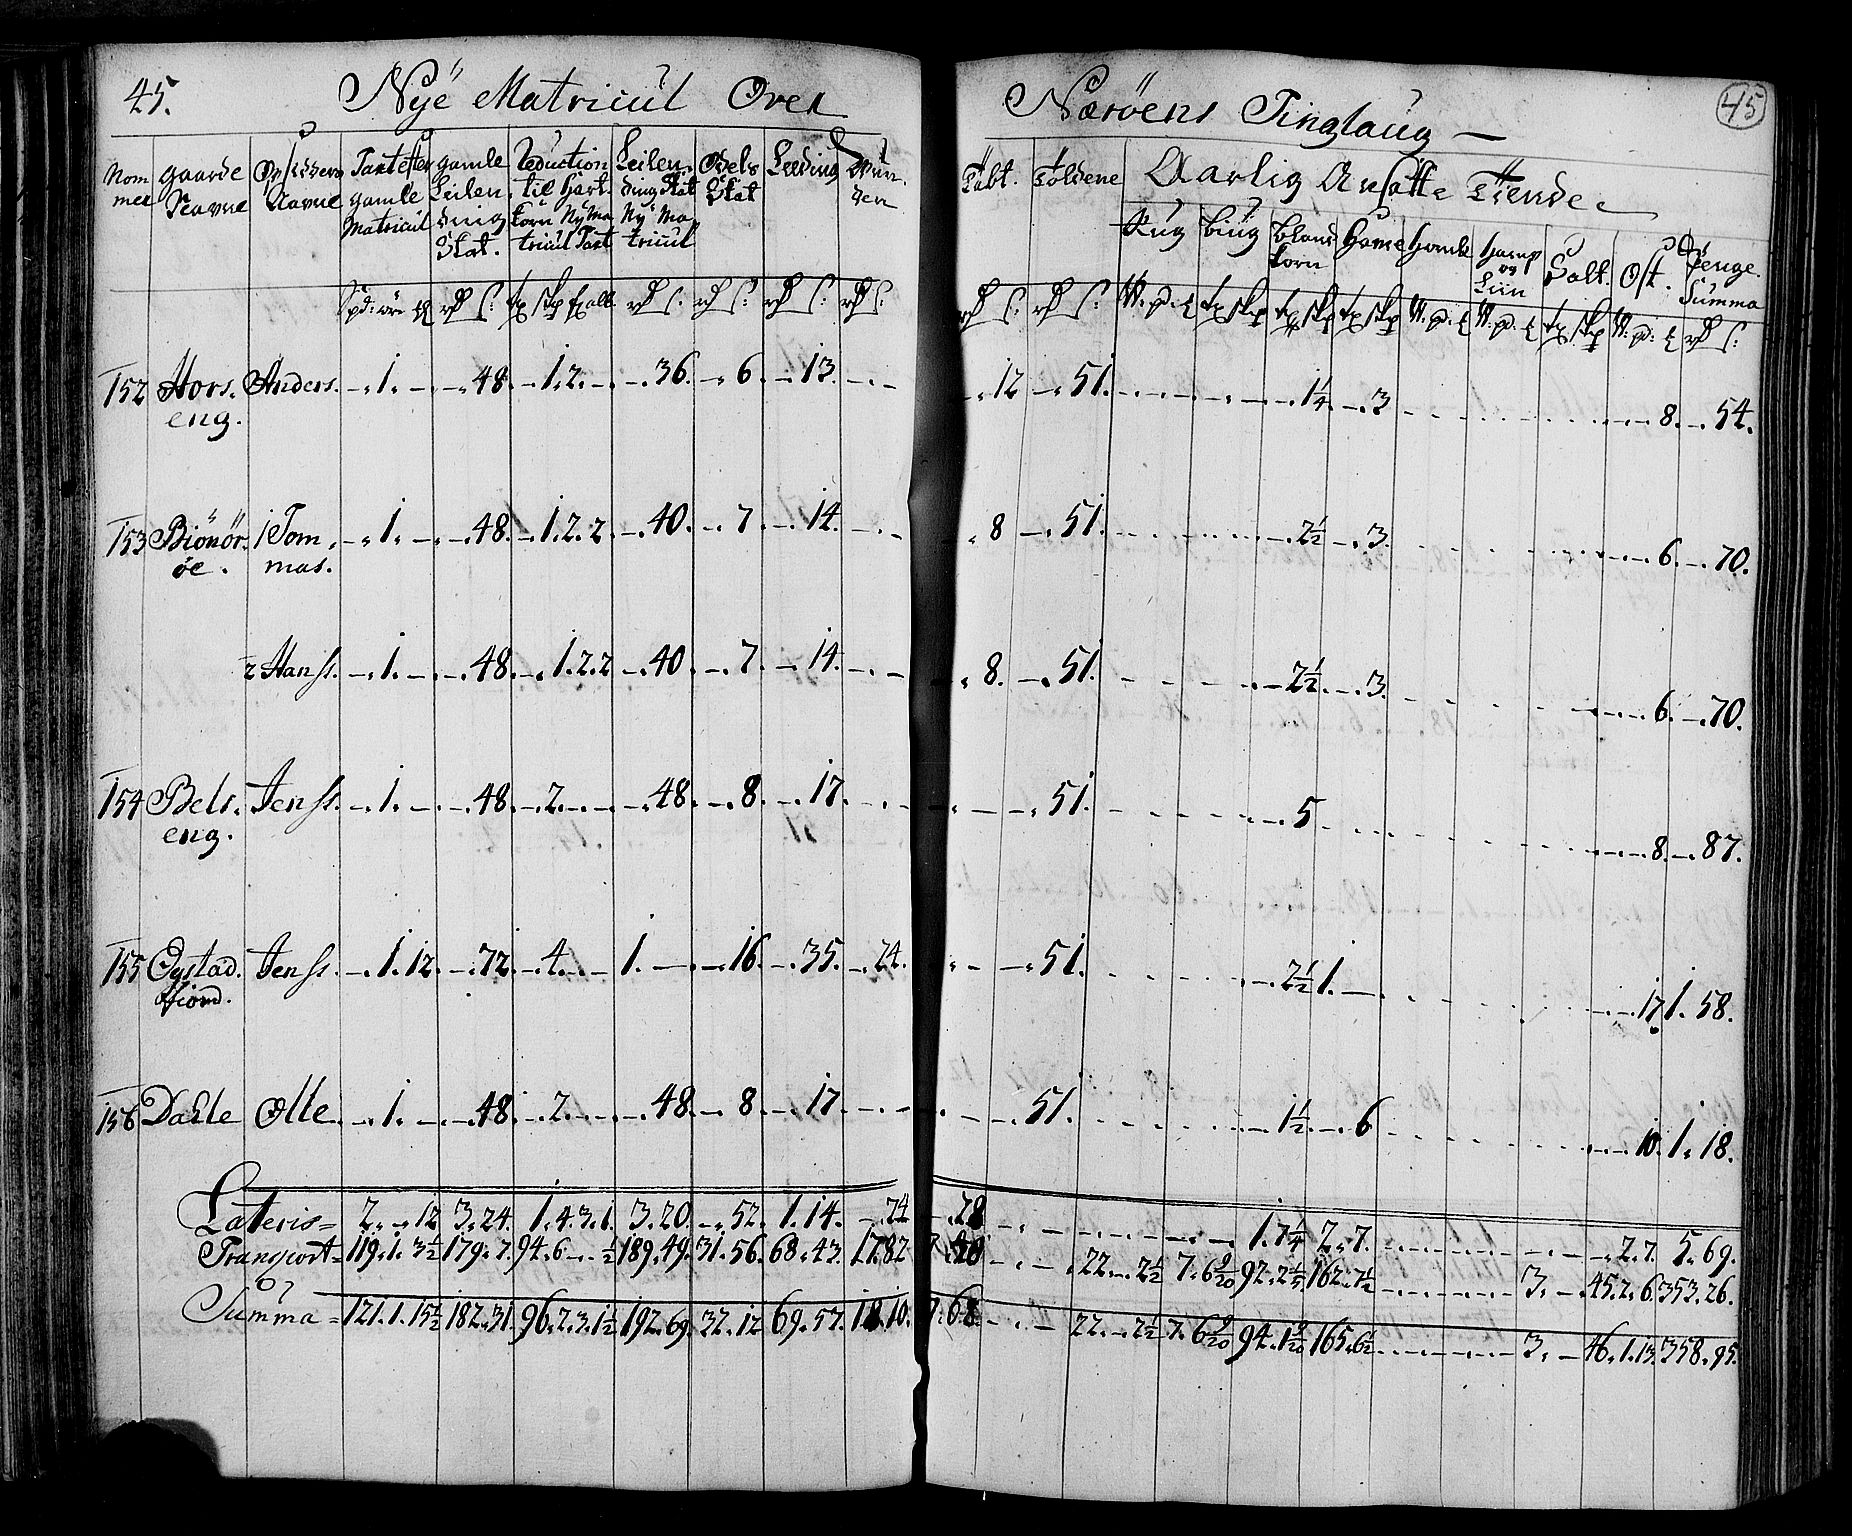 45. Nÿe Matricul Over Nærøens Tinglaug — 45
Nom mer | gaarde Navne | Opsidderes Navne | Taxt efter gamle Matricul | gamle Leilen dings Skat. | Reduction til Hart korn Nÿ Ma tricul Taxt | Leilen dings Skat Nÿ Ma tricul | Odels Skat | Leeding | | Tabt. | | Aarlig Ansatte Tiende
Rug | Biug | Bland korn | Hawre | Homle | Hamp og Liin | Salt. | Ost. | Penge. Summa
152 Hors. Anders. 1. 48. 1.2. 36. 6. 13. 12 51. 1¼ 3 8. 54.
eng.
153 Biönör. 1 Tom 1. 48. 1.2.2. 40. 7. 14. 8 51. 2½ 3. 6. 70.
öe. mas.
2 Hanss. 1. 48. 1.2.2 40 7. 14. 8. 51. 2½ 3. 6. 70.
154 Bels. Jenss. 1. 48. 2. 48. 8. 17. 51. 5 8. 87.
eng.
155 Oystad. Jenss. 1.12. 72. 4. 1. 16. 35. 24. 51. 2½ 1. 17 1. 58.
fiord.
156 Dahle Olle. 1. 48. 2. 48. 8. 17. 51. 1½ 6 10. 1. 18.
Lateris= 2. 12 3.24. 1.4.3.1. 3.20. 52. 1.14. 24 28 1.7¼ 2.7. 2.7. 5.69.
Transport= 119.1.3½ 179.7. 94.6.½ 189.49. 31.56. 68.43. 17.82 22.2½ 7.6 92.2 162.7½ 3. 45.2.6. 353.26.
Summa= 121.1.15½ 182.31. 96.2.3.1½ 192.69. 32.12 69.57. 18.10. 7.68 22.2½ 7.6 94.1 165.6½ 3. 46.1.13. 358.95.